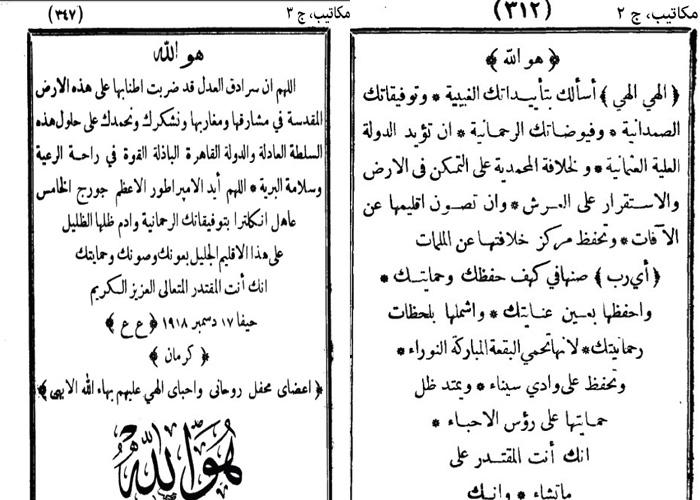 مكاتيب، ج ٢ (٣١٢)
﴿ هو الله ﴾
﴿ الهي الهي ﴾ أسألك بتأييداتك الغيبية * وتوفيقاتك
الصمدانية * وفيوضاتك الرحمانية * ان تؤيد الدولة
العلية العثمانية * والخلافة المحمدية على التمكن فى الارض
والاستقرار على العرش * وان تصون اقليمها عن
الآفات * وتحفظ مركز خلافتها عن الملمات
﴿ أي رب ﴾ صنها في كهف حفظك وحمايتك *
واحفظها بعين عنايتك * واشملها بلحظات
رحمانيتك * لانها تحمي البقعة المباركة النوراء *
وتحفظ على وادي سيناء * ويمتد ظل
حمايتها على رؤس الاحباء *
انك أنت المقتدر على
ماتشاء * وانك
مكاتيب، ج ٣ (٣٤٧)
هو الله
اللهم ان سرادق العدل قد ضربت اطنابها على هذه الارض
المقدسة في مشارقها ومغاربها ونشكرك ونحمدك على حلول هذه
السلطة العادلة والدولة القاهرة الباذلة القوة في راحة الرعية
وسلامة البرية * اللهم أيد الامبراطور الاعظم جورج الخامس
عاهل انكلترا بتوفيقاتك الرحمانية وادم ظلها الظليل
على هذا الاقليم الجليل بعونك وصونك وحمايتك
انك أنت المقتدر المتعالى العزيز الكريم
حيفا ١٧ دسمبر ١٩١٨ ﴿ ع ع ﴾
﴿ كرمان ﴾
﴿ اعضاى محفل روحانى واحباى الهي عليهم بهاء الله الابهى ﴾
هو الله